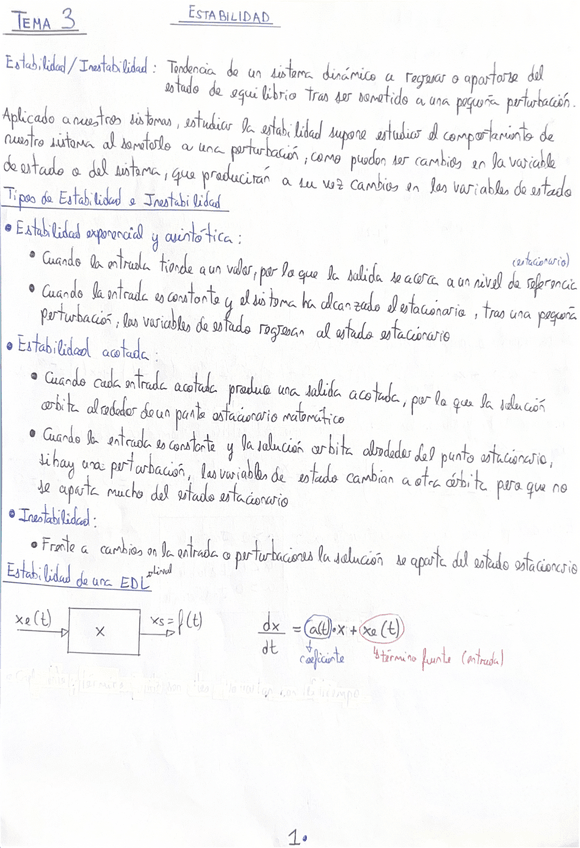 TEMA 3
ESTABILIDAD
Estabilidad/Inestabilidad: Tendencia de un sistema dinámico a regresar o apartarse del
estado de equilibrio tras ser sometido a una pequeña perturbación.
Aplicado a nuestros sistemas, estudiar la estabilidad supone estudiar el comportamiento de
nuestro sistema al someterlo a una perturbación, como pueden ser cambios en la variable
de estado o del sistema, que producirán a su vez cambios en las variables de estado
Tipos de Estabilidad e Inestabilidad
• Estabilidad exponencial y asintótica:
(estacionario)
• Cuando la entrada tiende a un valor, por lo que la salida se acerca a un nivel de referencia
• Cuando la entrada es constante y el sistema ha alcanzado el estacionario, tras una pequeña
perturbación, las variables de estado regresan al estado estacionario
• Estabilidad acotada:
• Cuando cada entrada acotada produce una salida acotada, por lo que la solución
orbita alrededor de un punto estacionario matemático
• Cuando la entrada es constante y la solución orbita alrededor del punto estacionario,
si hay una perturbación, las variables de estado cambian a otra órbita pero que no
se aparta mucho del estado estacionario
• Inestabilidad:
• Frente a cambios en la entrada o perturbaciones la solución se aparta del estado estacionario
Estabilidad de una EDL
xe(t)
x
xs=f(t)
dx/dt = a(t)·x + xe(t)
coeficiente
término fuente (entrada)
1.